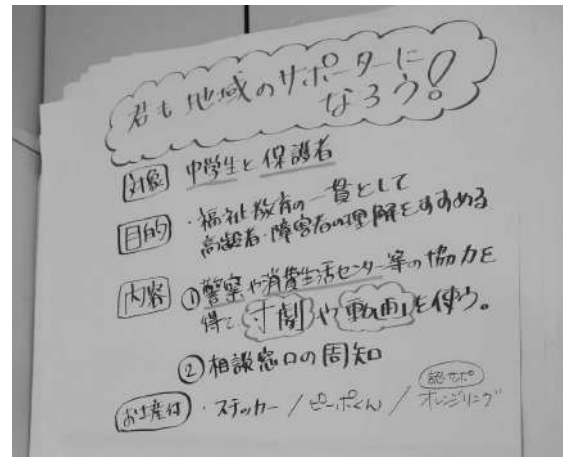 君も地域のサポーターに
なろう!
対象 中学生と保護者
目的 ・福祉教育の一貫として
高齢者・障害者の理解をすすめる
内容 ①警察や消費生活センター等の協力を
得て寸劇や動画を使う。
②相談窓口の周知
お土産付 ・ステッカー / ピーポくん / 認サポ
オレンジリング